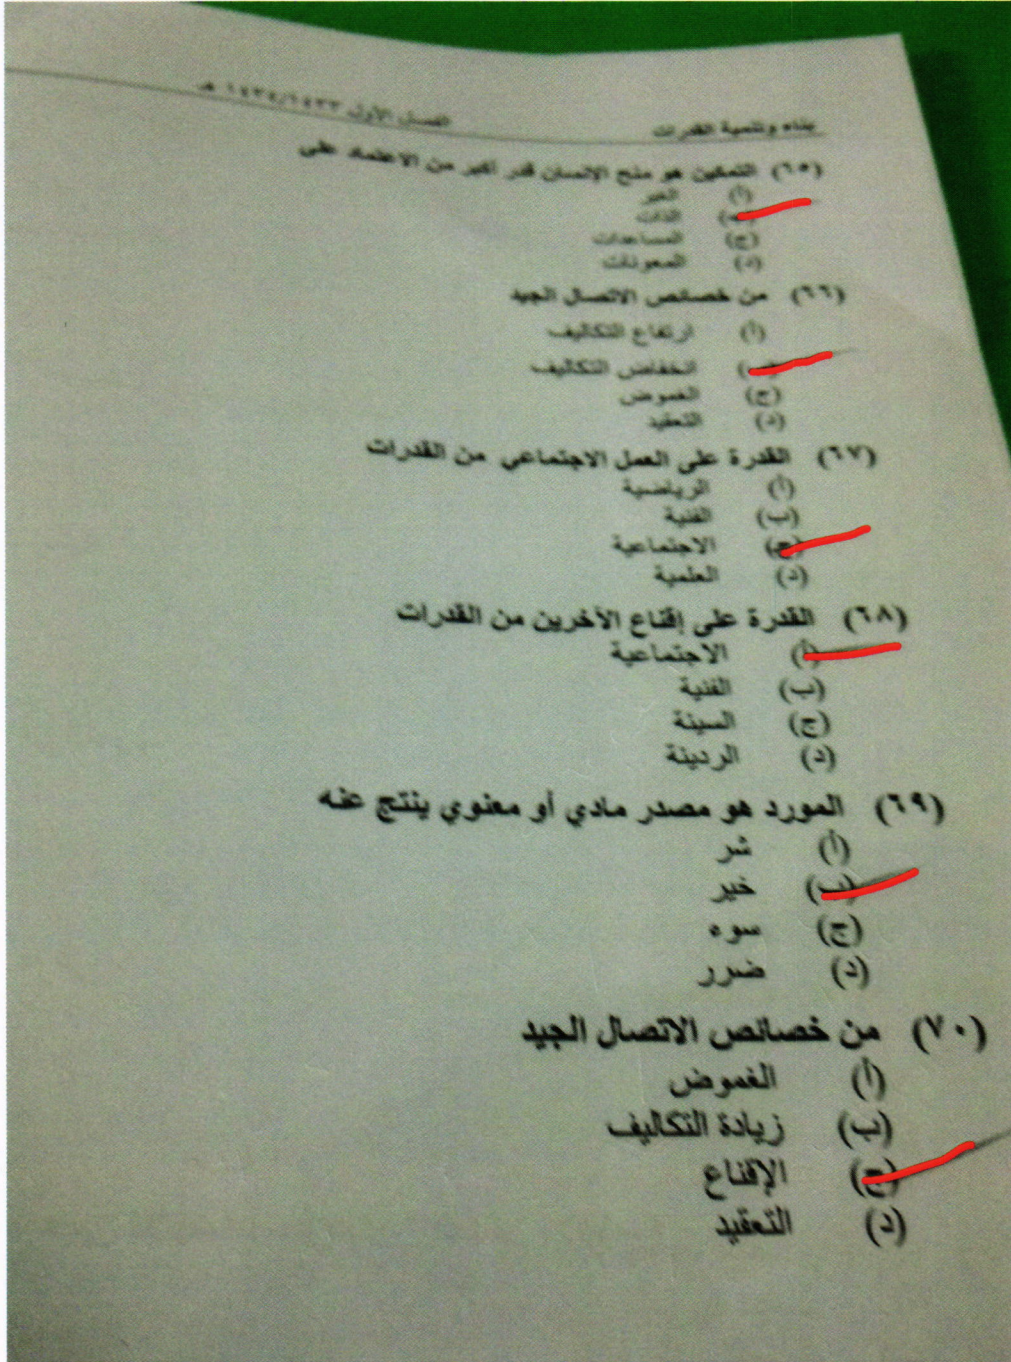 بناء وتنمية القدرات الفصل الأول ١٤٣٤/١٤٣٣ هـ
(٦٥) التمكين هو منح الإنسان قدر أكبر من الاعتماد على
(أ) الغير
(ب) الذات
(ج) المساعدات
(د) المعونات
(٦٦) من خصائص الاتصال الجيد
(أ) ارتفاع التكاليف
(ب) انخفاض التكاليف
(ج) الغموض
(د) التعقيد
(٦٧) القدرة على العمل الاجتماعي من القدرات
(أ) الرياضية
(ب) الفنية
(ج) الاجتماعية
(د) العلمية
(٦٨) القدرة على إقناع الآخرين من القدرات
(أ) الاجتماعية
(ب) الفنية
(ج) السيئة
(د) الرديئة
(٦٩) المورد هو مصدر مادي أو معنوي ينتج عنه
(أ) شر
(ب) خير
(ج) سوء
(د) ضرر
(٧٠) من خصائص الاتصال الجيد
(أ) الغموض
(ب) زيادة التكاليف
(ج) الإقناع
(د) التعقيد